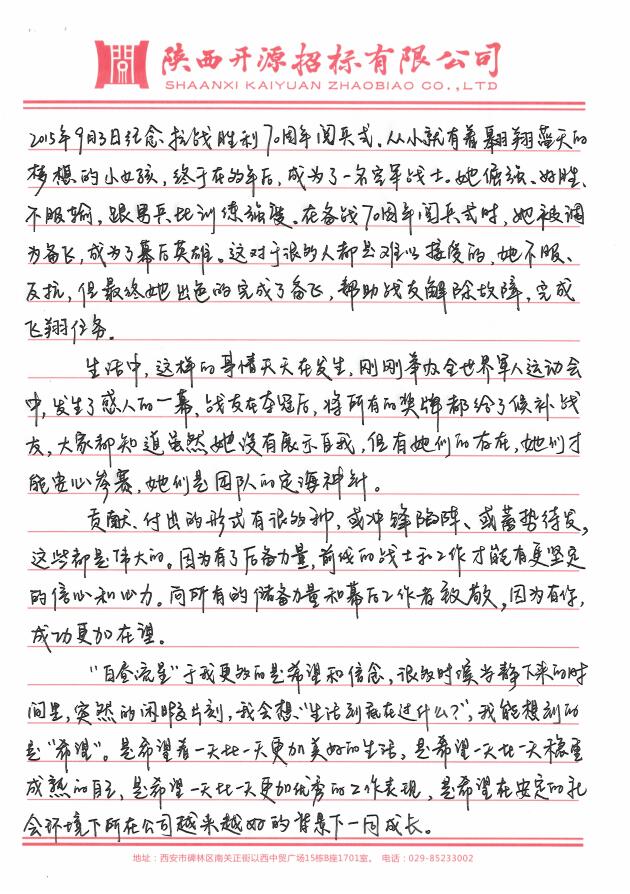 陕西开源招标有限公司
SHAANXI KAIYUAN ZHAOBIAO CO.,LTD
2015年9月3日纪念抗战胜利70周年阅兵式。从小就有着翱翔蓝天的
梦想的小女孩，终于在多年后，成为了一名空军战士。她倔强、好胜、
不服输，跟男兵比训练强度。在备战70周年阅兵式时，她被调
为备飞，成为了幕后英雄。这对于很多人都是难以接受的，她不服、
反抗，但最终她出色的完成了备飞，帮助战友解除故障，完成
飞翔任务。
生活中，这样的事情天天在发生，刚刚举办全世界军人运动会
中，发生了感人的一幕，战友在夺冠后，将所有的奖牌都给了候补战
友，大家都知道虽然她没有展示自我，但有她们的存在，她们才
能安心参赛，她们是团队的定海神针。
贡献、付出的形式有很多种，或冲锋陷阵、或蓄势待发，
这些都是伟大的。因为有了后备力量，前线的战士和工作才能有更坚定
的信心和心力。向所有的储备力量和幕后工作者致敬，因为有你，
成功更加在望。
“白昼流星”于我更多的是希望和信念，很多时候当静下来的时
间里，突然的闲暇片刻，我会想“生活到底在过什么？”，我能想到的
是“希望”。是希望着一天比一天更加美好的生活，是希望一天比一天稳重
成熟的自己，是希望一天比一天更加优秀的工作表现，是希望在安定的社
会环境下所在公司越来越好的背景下一同成长。
地址：西安市碑林区南关正街以西中贸广场15栋B座1701室。 电话：029-85233002